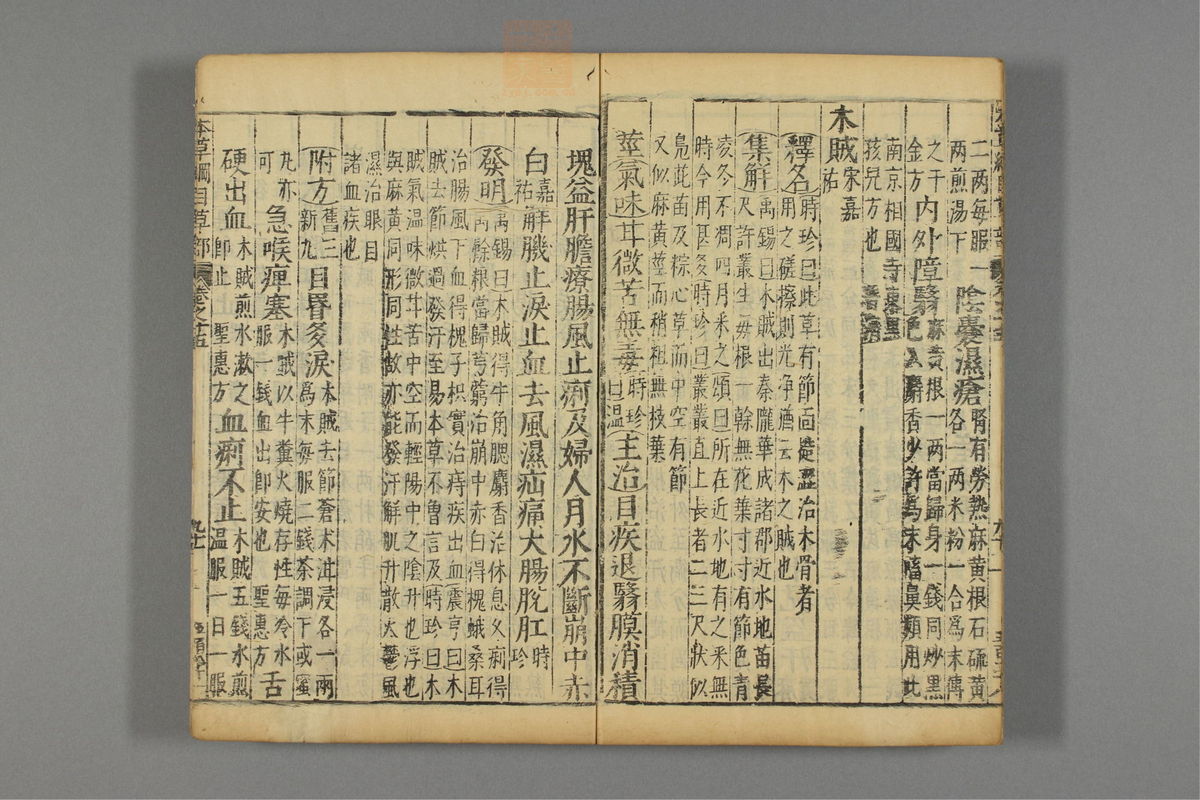 二两每服一陰囊濕瘡腎有勞熱麻黄根石硫黄
两煎湯下各一两米粉一合爲末傅
之千内外障翳麻黄根一两當歸身一錢同炒黒
金方色入麝香少許爲末㗜鼻頻用此
南京相國寺東黒
孩兒方也普濟
木賊宋嘉祐
釋名時珍曰此草有節面糙澀治木骨者
用之磋擦則光净猶云木之賊也
集解禹錫曰木賊出秦隴華成諸郡近水地苗長
尺許叢生毎根一幹無花葉寸寸有節色青
凌冬不凋四月采之頌曰所在近水地有之采無
時今用甚多時珍曰叢叢直上長者二三尺狀似
鳬茈苗及粽心草而中空有節
又似麻黄莖而稍粗無枝葉
莖氣味甘微苦無毒時珍曰温主治目疾退翳膜消積
塊益肝膽療腸風止痢及婦人月水不斷崩中赤
白嘉祐解肌止淚止血去風濕疝痛大腸脫肛時珍
發明禹錫曰木賊得牛角䚡麝香治休息久痢得
禹餘粮當歸芎藭治崩中赤白得槐蛾桑耳
治腸風下血得槐子枳實治痔疾出血震亨曰木
賊去節烘過發汗至易本草不曾言及時珍曰木
賊氣温味微甘苦中空而輕陽中之陰升也浮也
與麻黄同形同性故亦能發汗解肌升散火鬱風
濕治眼目
諸血疾也
附方舊三新九目昬多淚木賊去節蒼术泔浸各一兩
爲末每服二錢茶調下或蜜
丸亦可急喉痺塞木賊以牛糞火燒存性每冷水
服一錢血出卽安也聖惠方舌
硬出血木賊煎水漱之卽止聖惠方血痢不止木賊五錢水煎
温服一日一服
本草綱目草部
卷之十五
九十一